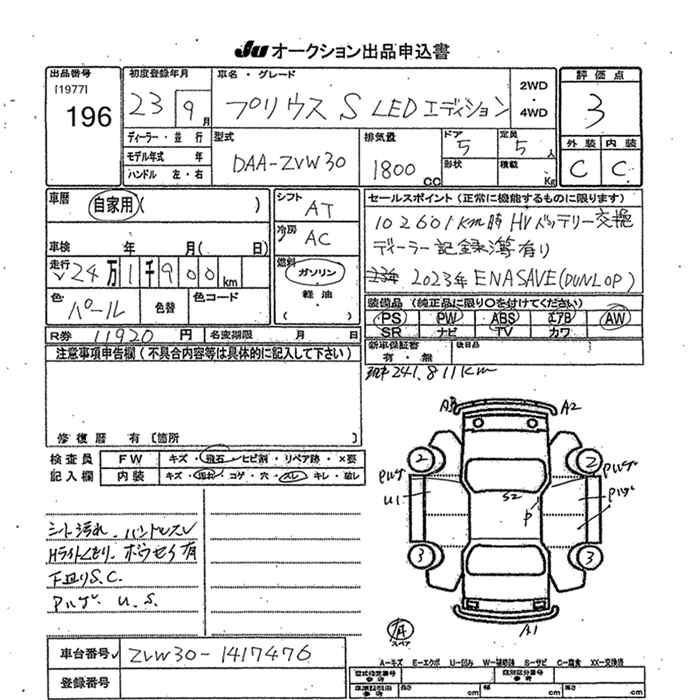 JU オークション出品申込書
出品番号
[1977]
196
初度登録年月
23 9月
車名・グレード
プリウス S LEDエディション
2WD
・
4WD
評価点
3
外装 内装
C C
ディーラー・並行
モデル年式 年
ハンドル 左・右
型式
DAA-ZVW30
排気量
1800 CC
ドア
5
形状
定員
5 人
積載
Kg
車歴
自家用( )
車検 年 月( 日)
走行
24万1千900km
色
パール
色替
色コード
シフト
AT
冷房
AC
燃料
ガソリン
軽油
( )
セールスポイント(正常に機能するものに限ります)
102601km時 HVバッテリー交換
ディーラー記録簿有り
2023年 ENASAVE(DUNLOP)
装備品(純正品に限り○を付けてください)
PS PW ABS エアB AW
SR ナビ TV カワ
R券 11920 円
名変期限 月 日
新車保証書
有・無
後日品
241.811km
注意事項申告欄(不具合内容等は具体的に記入して下さい)
修復歴 有〔箇所 〕
検査員
記入欄
FW キズ・飛石・ヒビ割・リペア跡・×要
内装 キズ・汚れ・コゲ・穴・スレ・キレ・破レ
シート汚れ、ハンドルスレ
Hライトくもり、ボウセイ有
下廻りS.C.
Pハゲ、U.S.
A3 A2
2 2
Pハゲ
U1
S2
P
Pハゲ
3 3
有
スペア
A1
車台番号 ZVW30-1417476
登録番号
A-キズ E-エクボ U-凹み W-補修跡 S-サビ C-腐食 XX-交換済
型式指定番号
参考
類別区分番号
参考
長さ cm 幅 cm 高さ cm